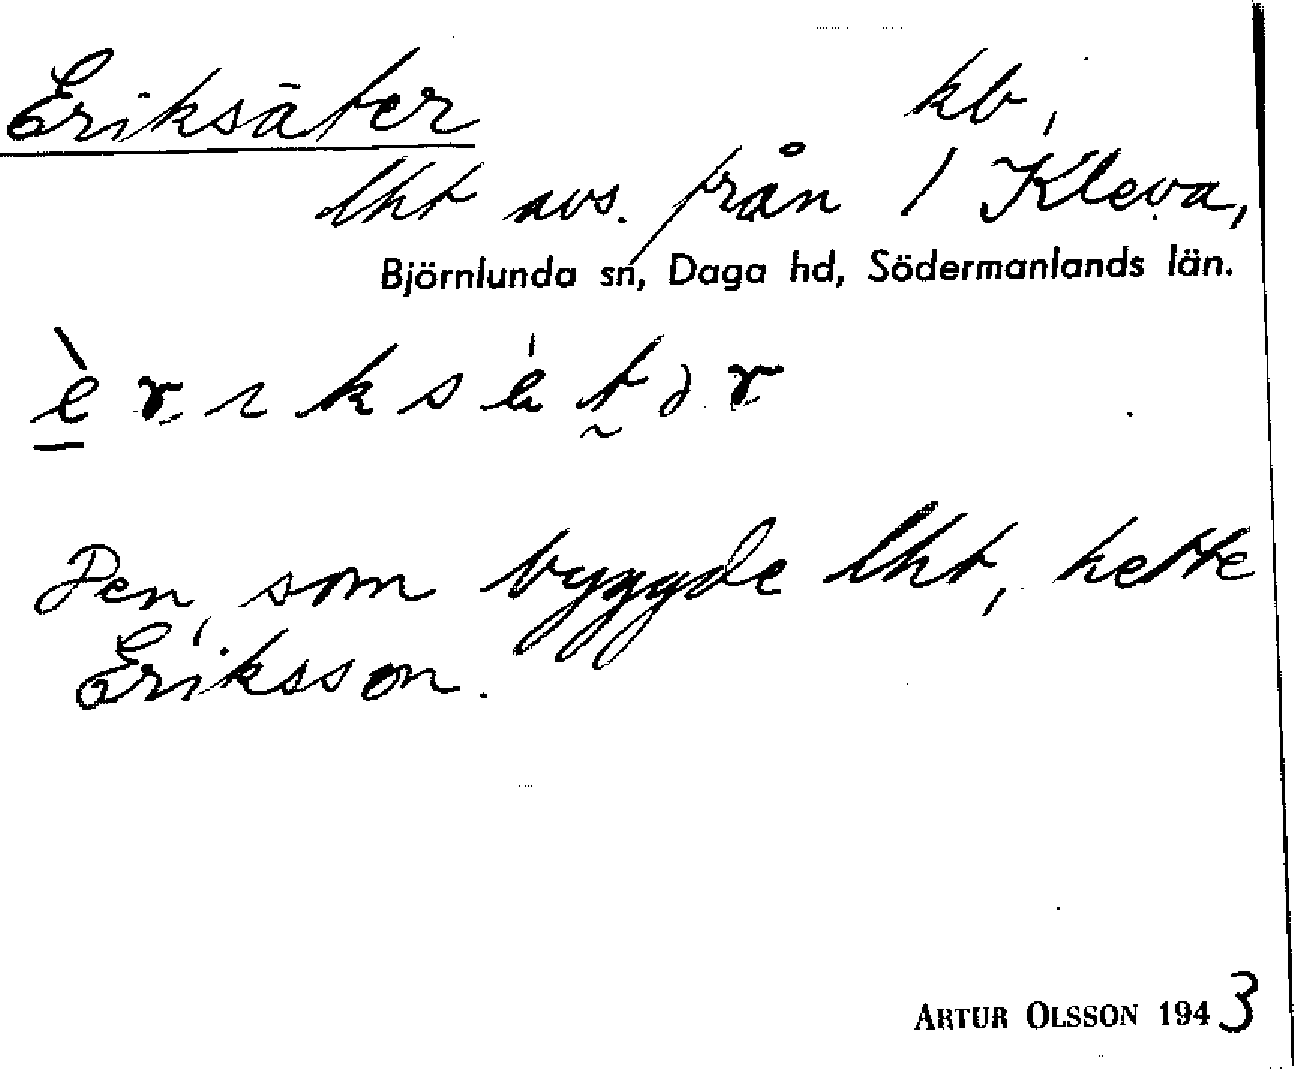 Eriksäter kb,
lht avs. från 1 Kleva,
Björnlunda sn, Daga hd, Södermanlands län.
Den, som byggde lht, hette
Eriksson.
ARTUR OLSSON 1943